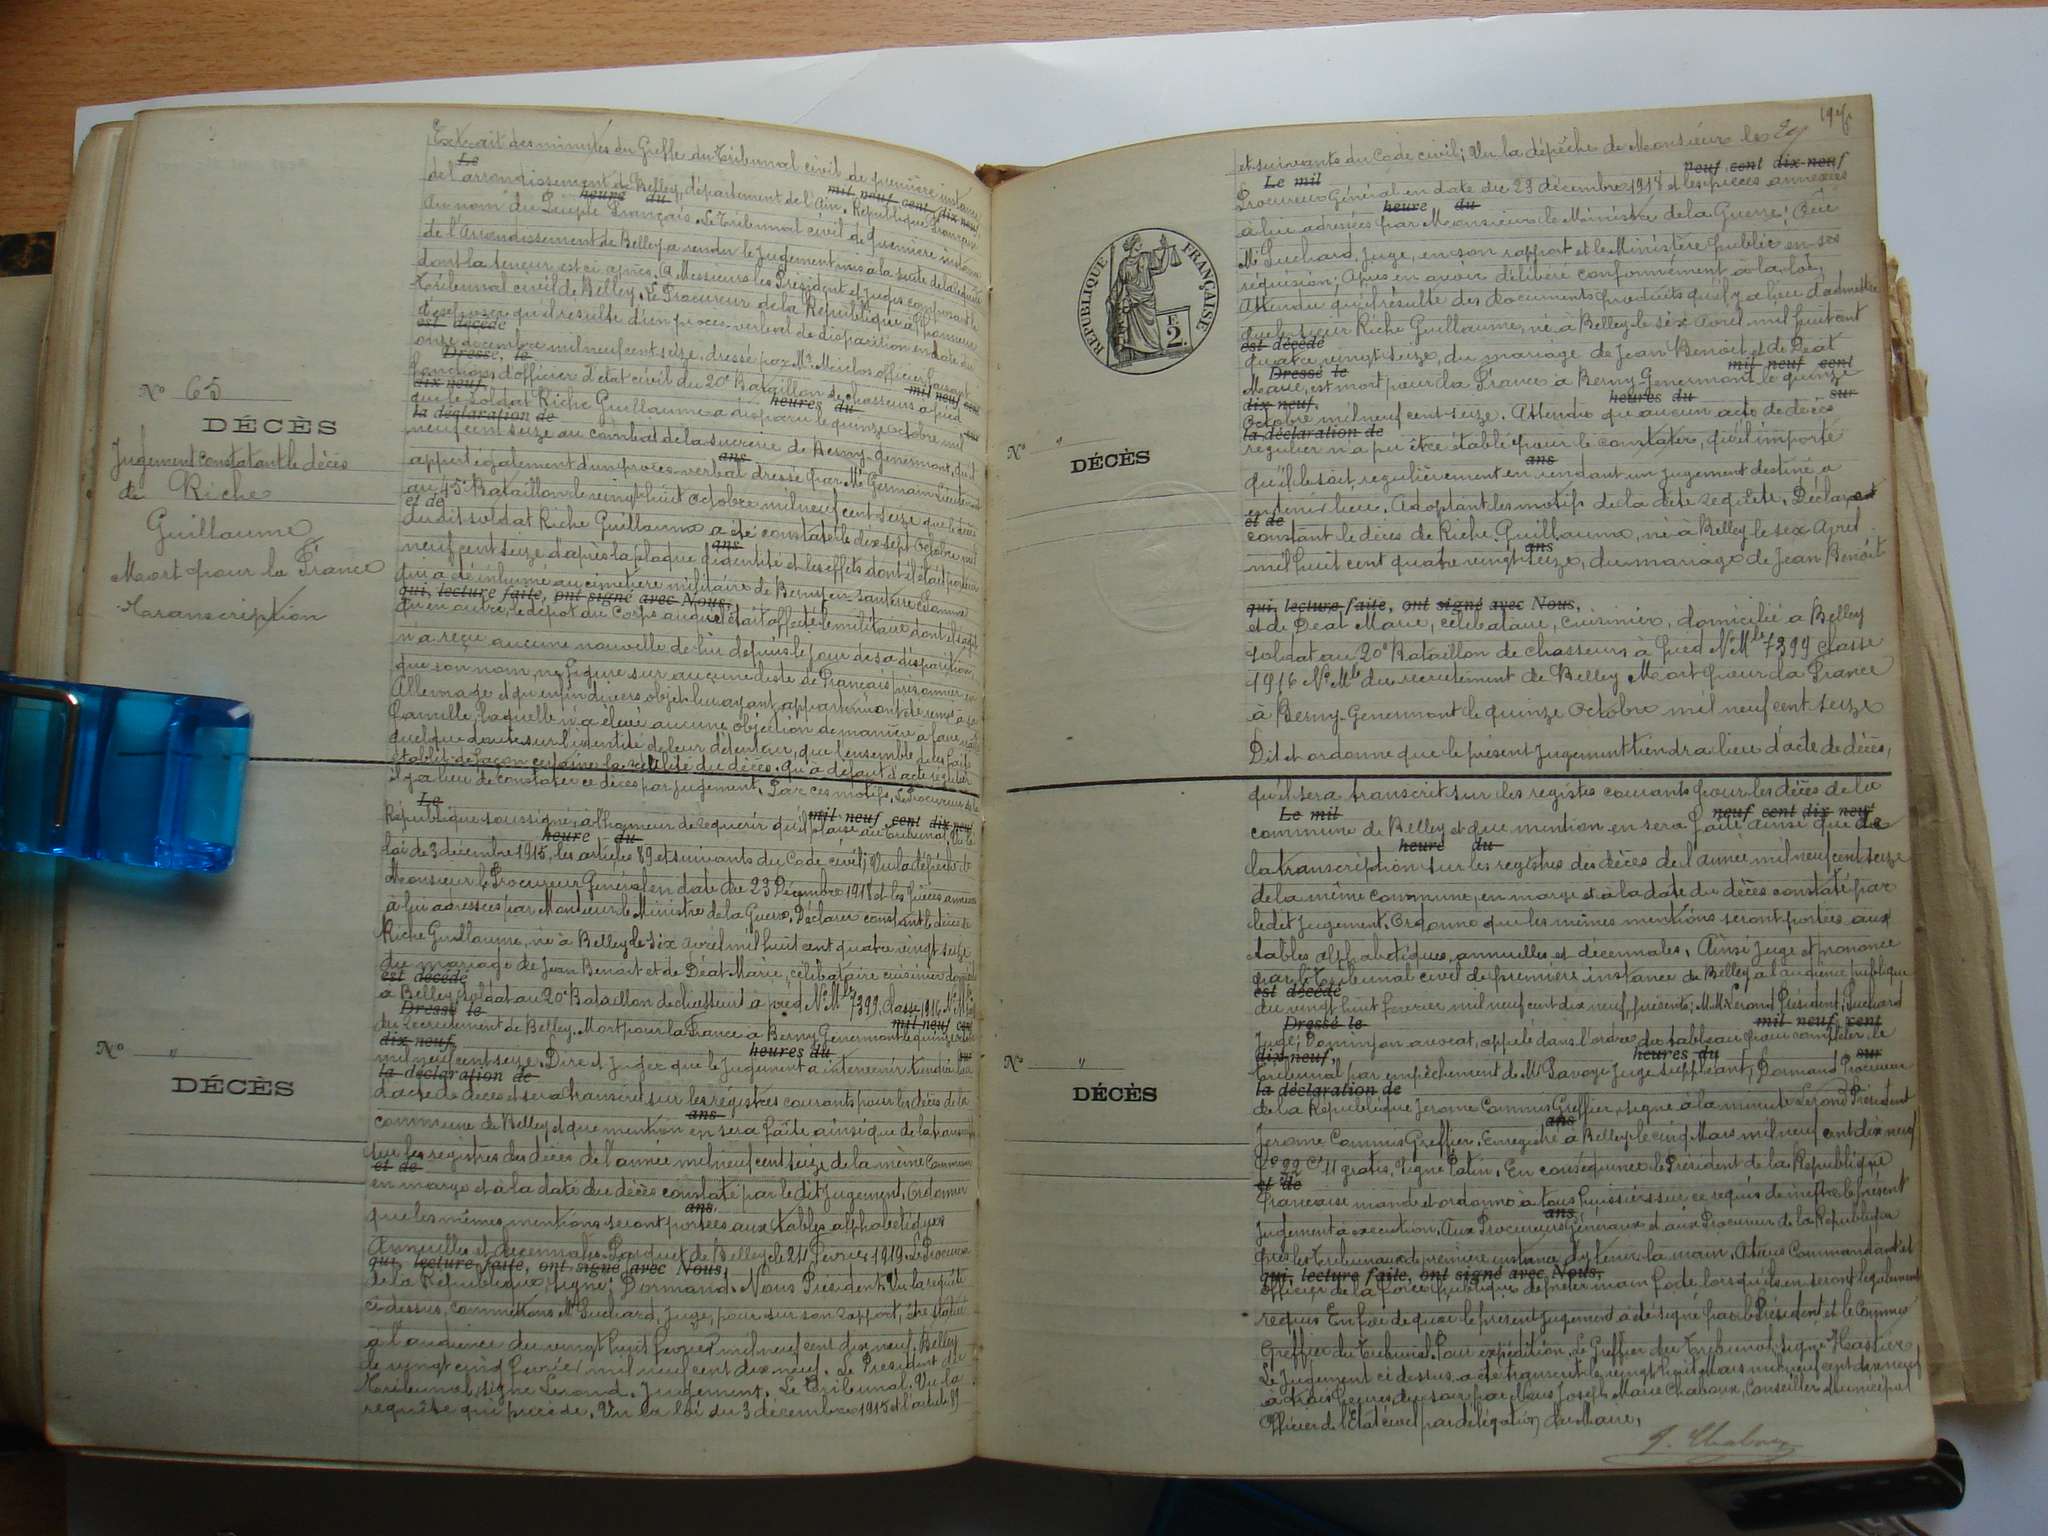 Nº 65
DÉCÈS
Jugement constatant le décès
de Riche
Guillaume
Mort pour la France
Transcription
Nº "
DÉCÈS
Extrait des minutes du Greffe du Tribunal civil de première instance
Le
de l'arrondissement de Belley, département de l'Ain. République Française
mil neuf cent dix neuf
heure du
Au nom du Peuple Français. Le Tribunal civil de première instance
de l'Arrondissement de Belley a rendu le Jugement mis à la suite de la requête
dont la teneur est ci après. A Messieurs les Président et Juges composant le
Tribunal civil de Belley. Le Procureur de la République a l'honneur
d'exposer qu'il résulte d'un procès-verbal de disparition en date du
est décédé
onze décembre mil neuf cent seize, dressé par Mr officier faisant
Dressé, le
fonctions d'officier d'état civil du 20e Bataillon de chasseurs à pied
dix neuf, mil neuf cent
que le soldat Riche Guillaume a disparu le quinze octobre mil
heures du
la déclaration de
neuf cent seize au combat de la sucrerie de Berny-Genermont, qu'il
ans
appert également d'un procès-verbal dressé par Mr Germain lieutenant
au 45e Bataillon le vingt huit octobre mil neuf cent seize que le décès
et de
du dit soldat Riche Guillaume a été constaté le dix sept octobre mil
ans
neuf cent seize d'après la plaque d'identité et les effets dont il était porteur
qui a été inhumé au cimetière militaire de Berny-en-Santerre (Somme
qui, lecture faite, ont signé avec Nous,
qu'en outre, le dépôt du Corps auquel était affecté le militaire dont il s'agit
n'a reçu aucune nouvelle de lui depuis le jour de sa disparition,
que son nom ne figure sur aucune liste de Français prisonnier en
Allemagne et qu'enfin divers objets lui ayant appartenu ont été remis à sa
famille, laquelle n'a élevé aucune objection de manière à faire naître
quelque doute sur l'identité de leur détenteur, que l'ensemble de ces faits
établit de façon certaine la réalité du décès. Qu'à défaut d'acte régulier
il y a lieu de constater ce décès par jugement. Par ces motifs. Le Procureur de la
Le
République soussigné, a l'honneur de requérir qu'il plaise au Tribunal. Vu la
mil neuf cent dix neuf
heure du
loi du 3 décembre 1915, les articles 89 et suivants du Code civil; Vu la dépêche de
Monsieur le Procureur Général en date du 23 Décembre 1918 et les pièces annexées
à lui adressées par Monsieur le Ministre de la Guerre. Déclarer constant le décès de
Riche Guillaume, né à Belley le six avril mil huit cent quatre vingt seize
du mariage de Jean Benoit et de Déat Marie, célibataire cuisinier domicilié
est décédé
à Belley, soldat au 20e Bataillon de chasseurs à pied Nº Mle 7399, classe 1916 Nº Mle
Dressé le
du recrutement de Belley. Mort pour la France à Berny-Genermont le quinze octobre
mil neuf cent
dix neuf,
heures du
mil neuf cent seize. Dire et Juger que le Jugement à intervenir tiendra lieu
sur
la déclaration de
d'acte de décès et sera transcrit sur les registres courants pour les décès de la
ans
commune de Belley et que mention en sera faite ainsi que de la transcription
sur les registres des décès de l'année mil neuf cent seize de la même Commune
et de
en marge et à la date du décès constaté par le dit Jugement, Ordonner
ans
que les mêmes mentions seront portées aux tables alphabétiques
Annuelles et décennales. Parquet de Belley le 24 Février 1919. Le Procureur
qui, lecture faite, ont signé avec Nous,
de la République, Signé: Dormand. Nous Président Vu la requête
ci-dessus, commettons Mr Luchard, Juge, pour sur son rapport, être statué
à l'audience du vingt huit février mil neuf cent dix neuf. Belley
le vingt cinq février mil neuf cent dix neuf. Le Président du
Tribunal, signé Lerond. Jugement. Le Tribunal. Vu la
requête qui précède. Vu la loi du 3 décembre 1915 et l'article 89
29
RÉPUBLIQUE FRANÇAISE
F.
2.
Nº "
DÉCÈS
Nº "
DÉCÈS
et suivants du Code civil; Vu la dépêche de Monsieur le
Le mil neuf cent dix neuf
Procureur Général en date du 23 décembre 1918 et les pièces annexées
heure du
à lui adressées par Monsieur le Ministre de la Guerre; Ouï
Mr Luchard, Juge, en son rapport et le Ministère public en ses
réquision; Après en avoir délibéré conformément à la loi,
Attendu qu'il résulte des documents produits qu'il y a lieu d'admettre
que le sieur Riche Guillaume, né à Belley le six Avril mil huit cent
est décédé
quatre vingt seize, du mariage de Jean Benoit et de Déat
Dressé le mil neuf cent
Marie, est mort pour la France à Berny-Genermont le quinze
dix neuf, heures du sur
Octobre mil neuf cent seize. Attendu qu'aucun acte de décès
la déclaration de
régulier n'a pu être établi pour le constater, qu'il importe
ans
qu'il le soit régulièrement en rendant un jugement destiné à
en tenir lieu. Adoptant les motifs de la dite requête. Déclare
et de
constant le décès de Riche Guillaume, né à Belley le six Avril
ans
mil huit cent quatre vingt seize, du mariage de Jean Benoit
qui, lecture faite, ont signé avec Nous,
et de Déat Marie, célibataire, cuisinier, domicilié à Belley
soldat au 20e Bataillon de chasseurs à pied Nº Mle 7399 classe
1916 Nº Mle du recrutement de Belley Mort pour la France
à Berny-Genermont le quinze Octobre mil neuf cent seize
Dit et ordonne que le présent Jugement tiendra lieu d'acte de décès,
qu'il sera transcrit sur les registres courants pour les décès de la
Le mil neuf cent dix neuf
commune de Belley et que mention en sera faite ainsi que de
heure du
la transcription sur les registres des décès de l'année mil neuf cent seize
de la même commune, en marge et à la date du décès constaté par
le dit Jugement. Ordonne que les mêmes mentions seront portées aux
tables alphabétiques, annuelles et décennales. Ainsi Jugé et prononcé
par le Tribunal civil de première instance de Belley à l'audience publique
est décédé
du vingt huit février mil neuf cent dix neuf, présents; M.M. Lerond Président, Luchard
Dressé le mil neuf cent
Juge; Dominjon avocat, appelé dans l'ordre du tableau pour compléter le
dix neuf, heures du sur
Tribunal par empêchement de Mr Savoye Juge suppléant, Dormand Procureur
la déclaration de
de la République Jerome Commis Greffier, signé à la minute Lerond Président
ans
Jerome Commis Greffier. Enregistré à Belley le cinq Mars mil neuf cent dix neuf
Fº 22 Cº 11 gratis, Signé Patin. En conséquence le Président de la République
et de
Française mande et ordonne à tous huissiers sur ce requis de mettre le présent
ans
Jugement à exécution, Aux Procureurs Généraux et aux Procureur de la République
près les Tribunaux de première instance d'y tenir la main. A tous Commandants et
qui, lecture faite, ont signé avec Nous,
officier de la force publique de prêter main forte lorsqu'ils en seront légalement
requis En foi de quoi le présent jugement a été signé par le Président et le Commis
Greffier du Tribunal. Pour expédition. Le Greffier du Tribunal, signé Hastier
Le Jugement ci dessus a été transcrit le vingt huit Mars mil neuf cent dix neuf
à trois heures du soir par Nous Joseph Marie Chaboux, Conseiller Municipal
Officier de l'Etat civil par délégation du Maire,
J. Chaboux